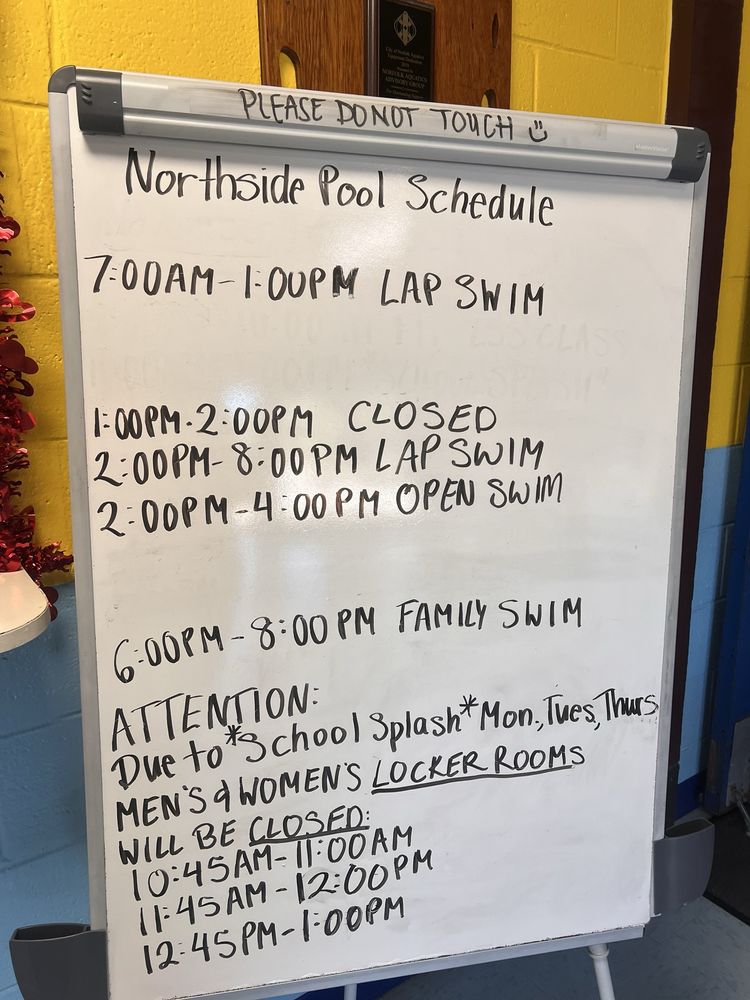 City of Norfolk Aquatics
NORFOLK AQUATICS
ADVISORY GROUP
PLEASE DO NOT TOUCH
Northside Pool Schedule
7:00AM-1:00PM LAP SWIM
1:00PM-2:00PM CLOSED
2:00PM-8:00PM LAP SWIM
2:00PM-4:00PM OPEN SWIM
6:00PM-8:00PM FAMILY SWIM
ATTENTION:
Due to *School Splash* Mon., Tues, Thurs
MEN'S & WOMEN'S LOCKER ROOMS
WILL BE CLOSED:
10:45AM-11:00AM
11:45AM-12:00PM
12:45PM-1:00PM